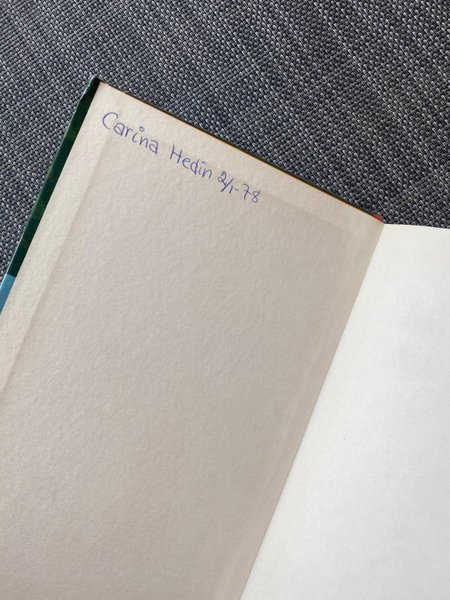 Carina Hedin 2/1-78